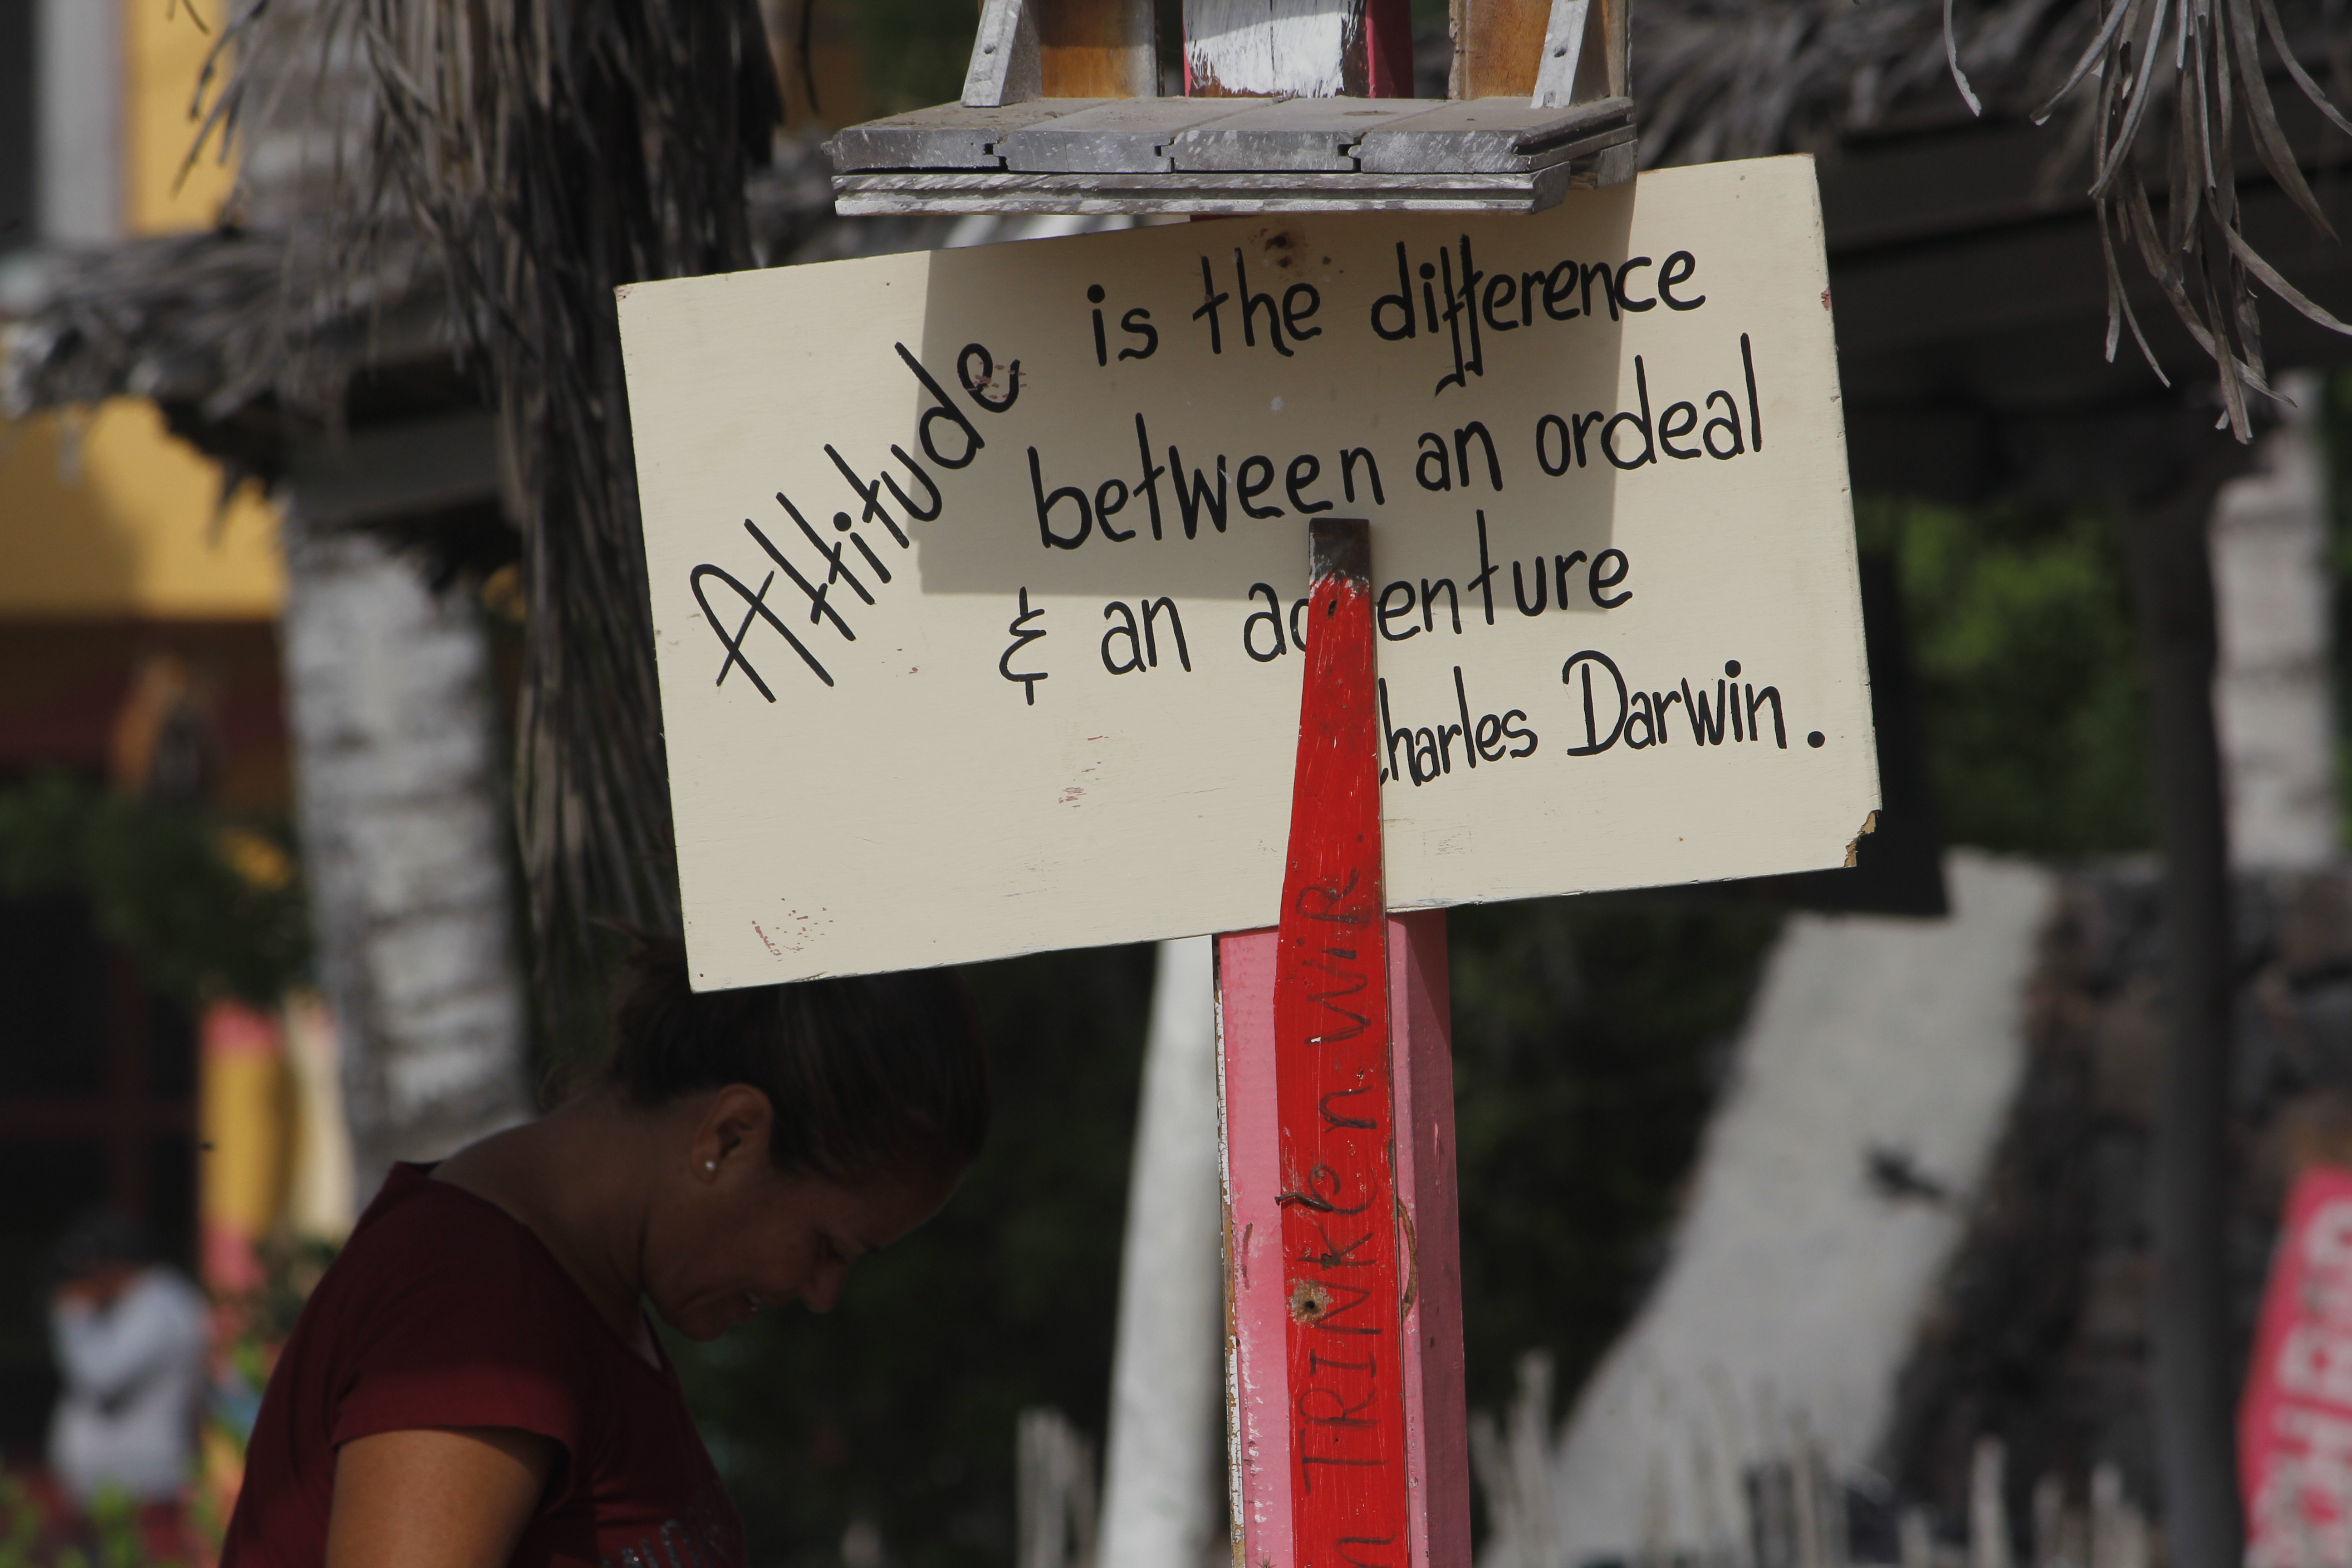 Attitude is the difference
between an ordeal
& an adventure
Charles Darwin.
n TRINKEN WIR